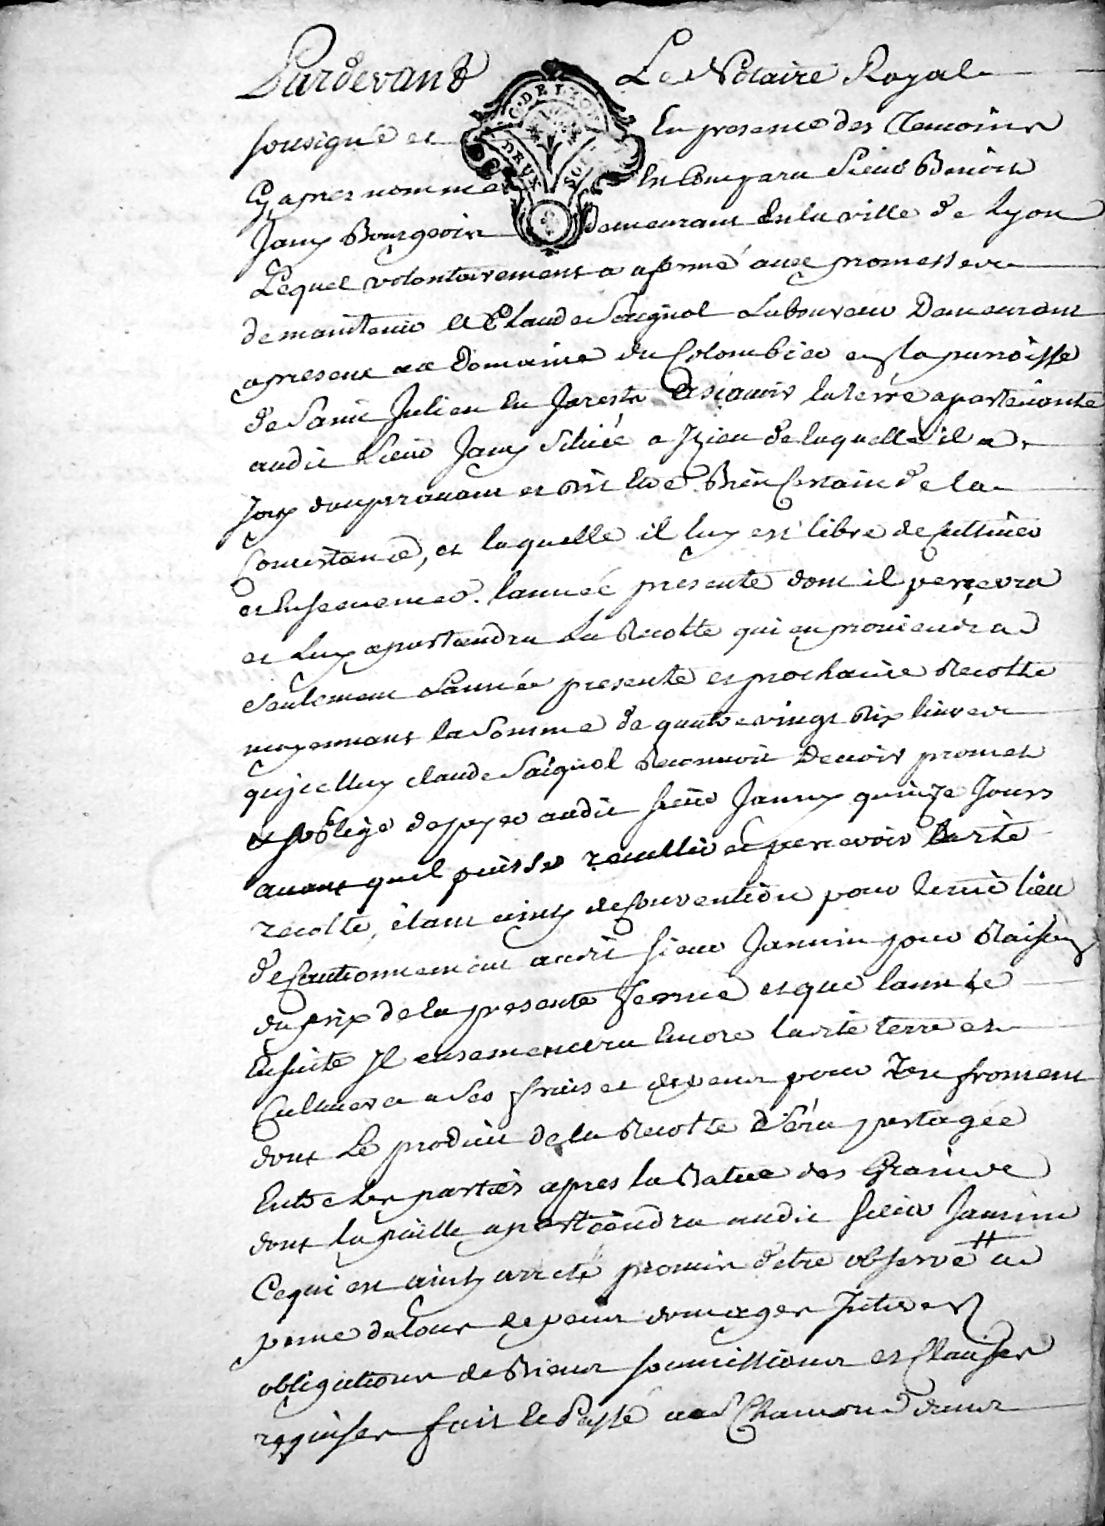 Pardevant Le Notaire Royal
sousigné et En presence des Temoins
Cy apres nommés En Comparu Sieur Benoit
Janry Bourgeois demeurant En la ville de Lyon
Lequel volontairement a afermé avec promesse
de maintenir a Claude Saignol Laboureur Demeurant
apresent au Domaine du Colombier en la paroisse
de Saint Julien En Jarest Asçavoir la terre apartenante
audit Sieur Janry Situeé a Izieu de laquelle il a
Joüy auparavant et dit Etre Bien Certain de la
Consistance, et laquelle il luy est libre de Cultiver
et Ensemencer lannée presente dont il percevra
et Luy apartiendra La Recolte qui en proviendra
Seulement Lannée presente et prochaine Recolte
moyennant la Somme de quatre vingt dix livres
qu'jcelluy claude Saignol Reconnoit Devoir promet
et soblige de payer audit sieur Janry quinze Jours
avant quil puisse recullir et percevoir Ladite
recolte, étant ainsy de Convention pour tenir lieu
de Cautionnement audit sieur Jannin pour Raison
du prix de la presente ferme et que lannée
Ensuite Il ensemencera Encore ladite terre et
Cultivera a Ses frais et depens pour Ten froment
dont Le produit de la Recolte Sera partagée
Entre les parties apres la Batue des Grains
dont la paille apartiendra audit sieur Jannin
Ce qui est ainsy arreté promis d'etre observé # a
peine de tous depens domages Interets
obligations de Biens soumissions et Clauses
requises fait et Passé a St Chamond dans
C. DE LYON
DEUX SOLS